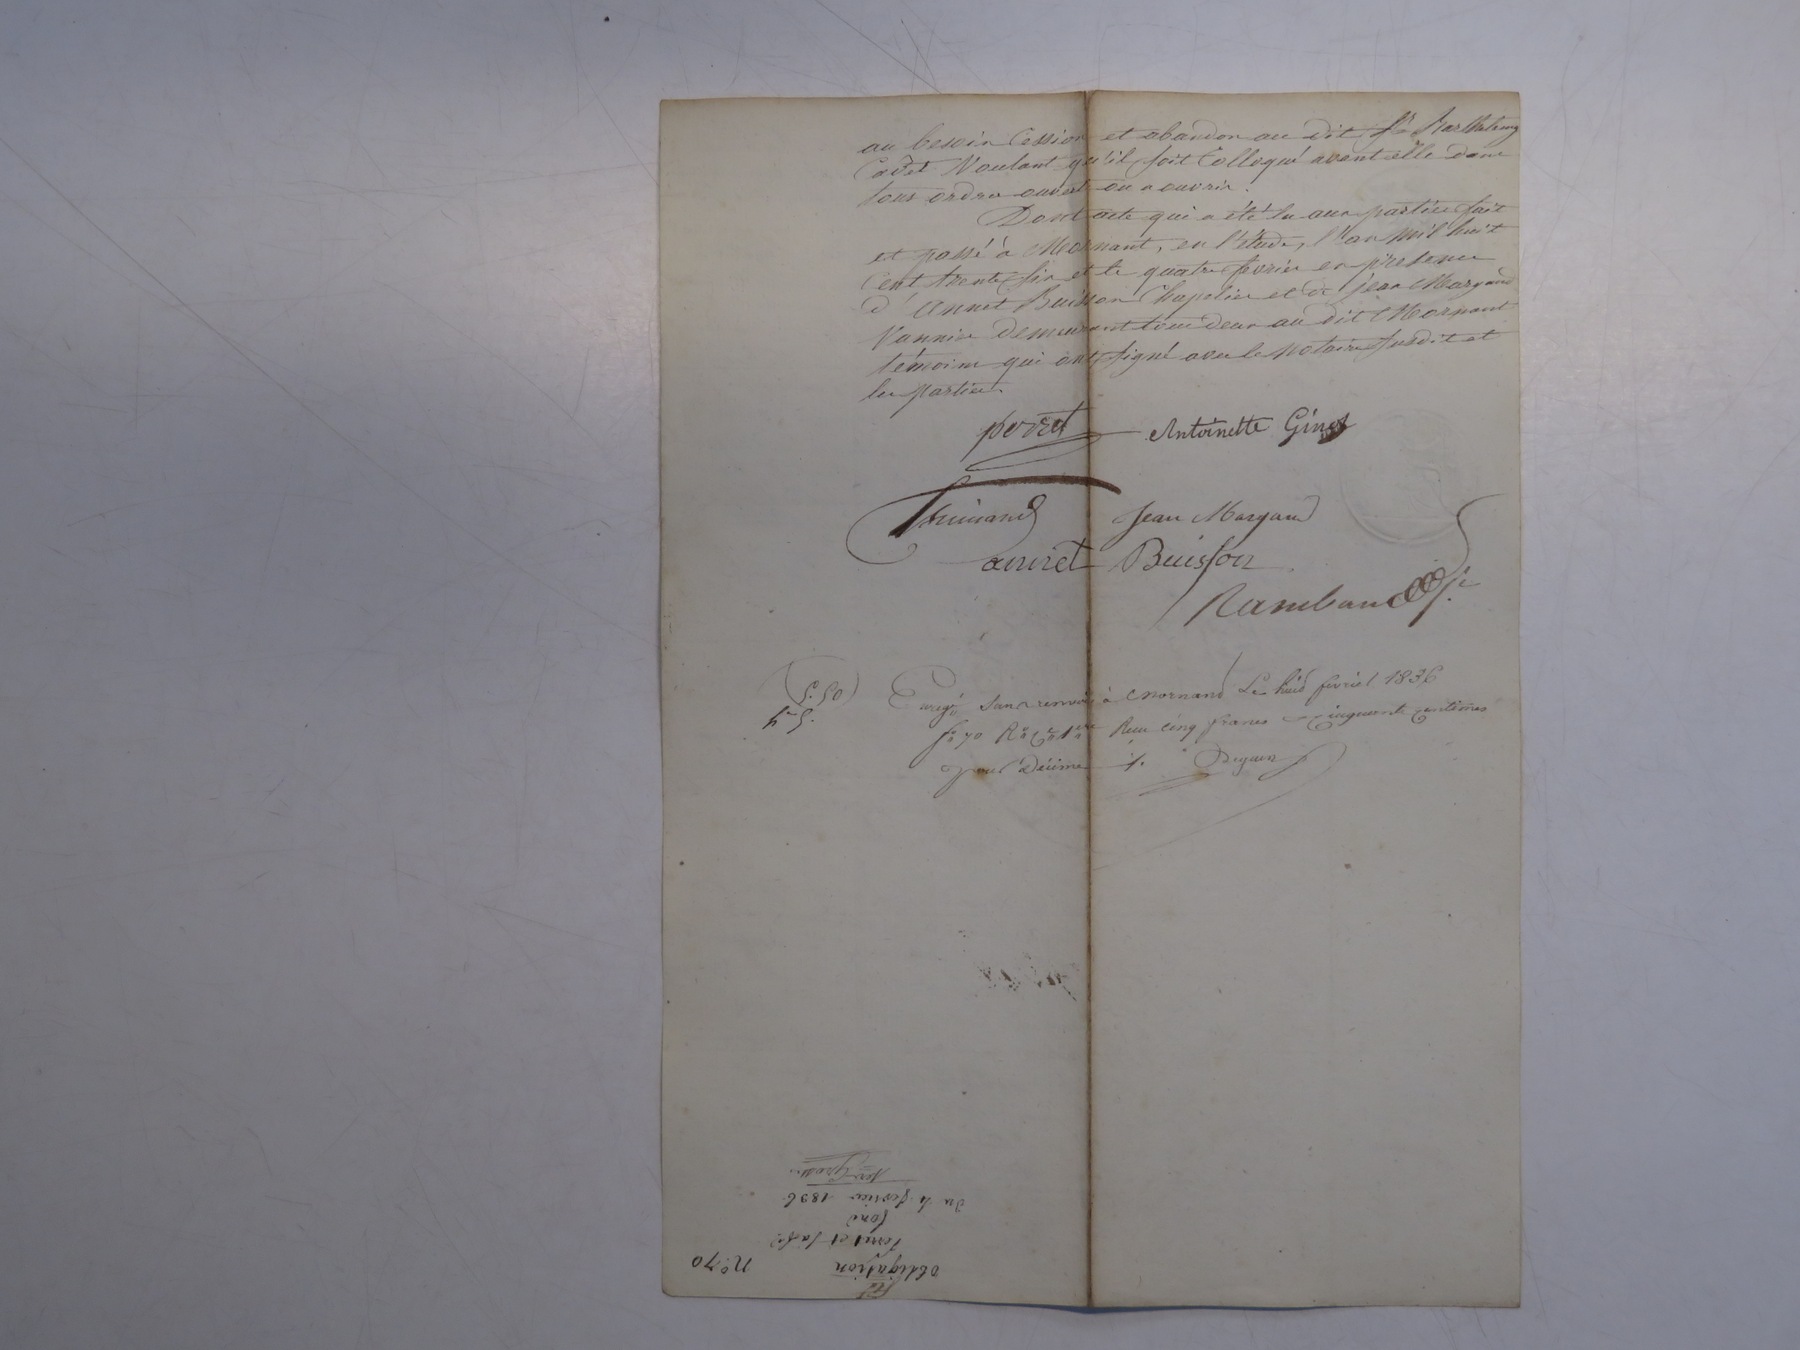 au besoin Cession et abandon au dit Sr Barthelemy
Cadet Voulant qu'il soit Colloqué avant elle dans
tous ordres ouvert ou a ouvrir.
Dont acte qui a été lu aux parties fait
et passé à Mornant, en l'étude, l'an Mil huit
Cent trente six et le quatre fevrier en presence
d'Annet Buisson Chapelier et de Jean Margand
Vannier demeurant tous deux au dit Mornant
témoins qui ont signé avec le Notaire susdit et
les parties.
perret Antoinette Ginot
Jean Margand
annet Buisson
Rambaud
(5. 50)
Enregé sans renvoi à Mornand Le huit fevriel 1836
fo 70 Ro Ce 1ere Recu cinq francs cinquante centimes
pour décime
no. 70
obligation
du 4 fevrier 1836